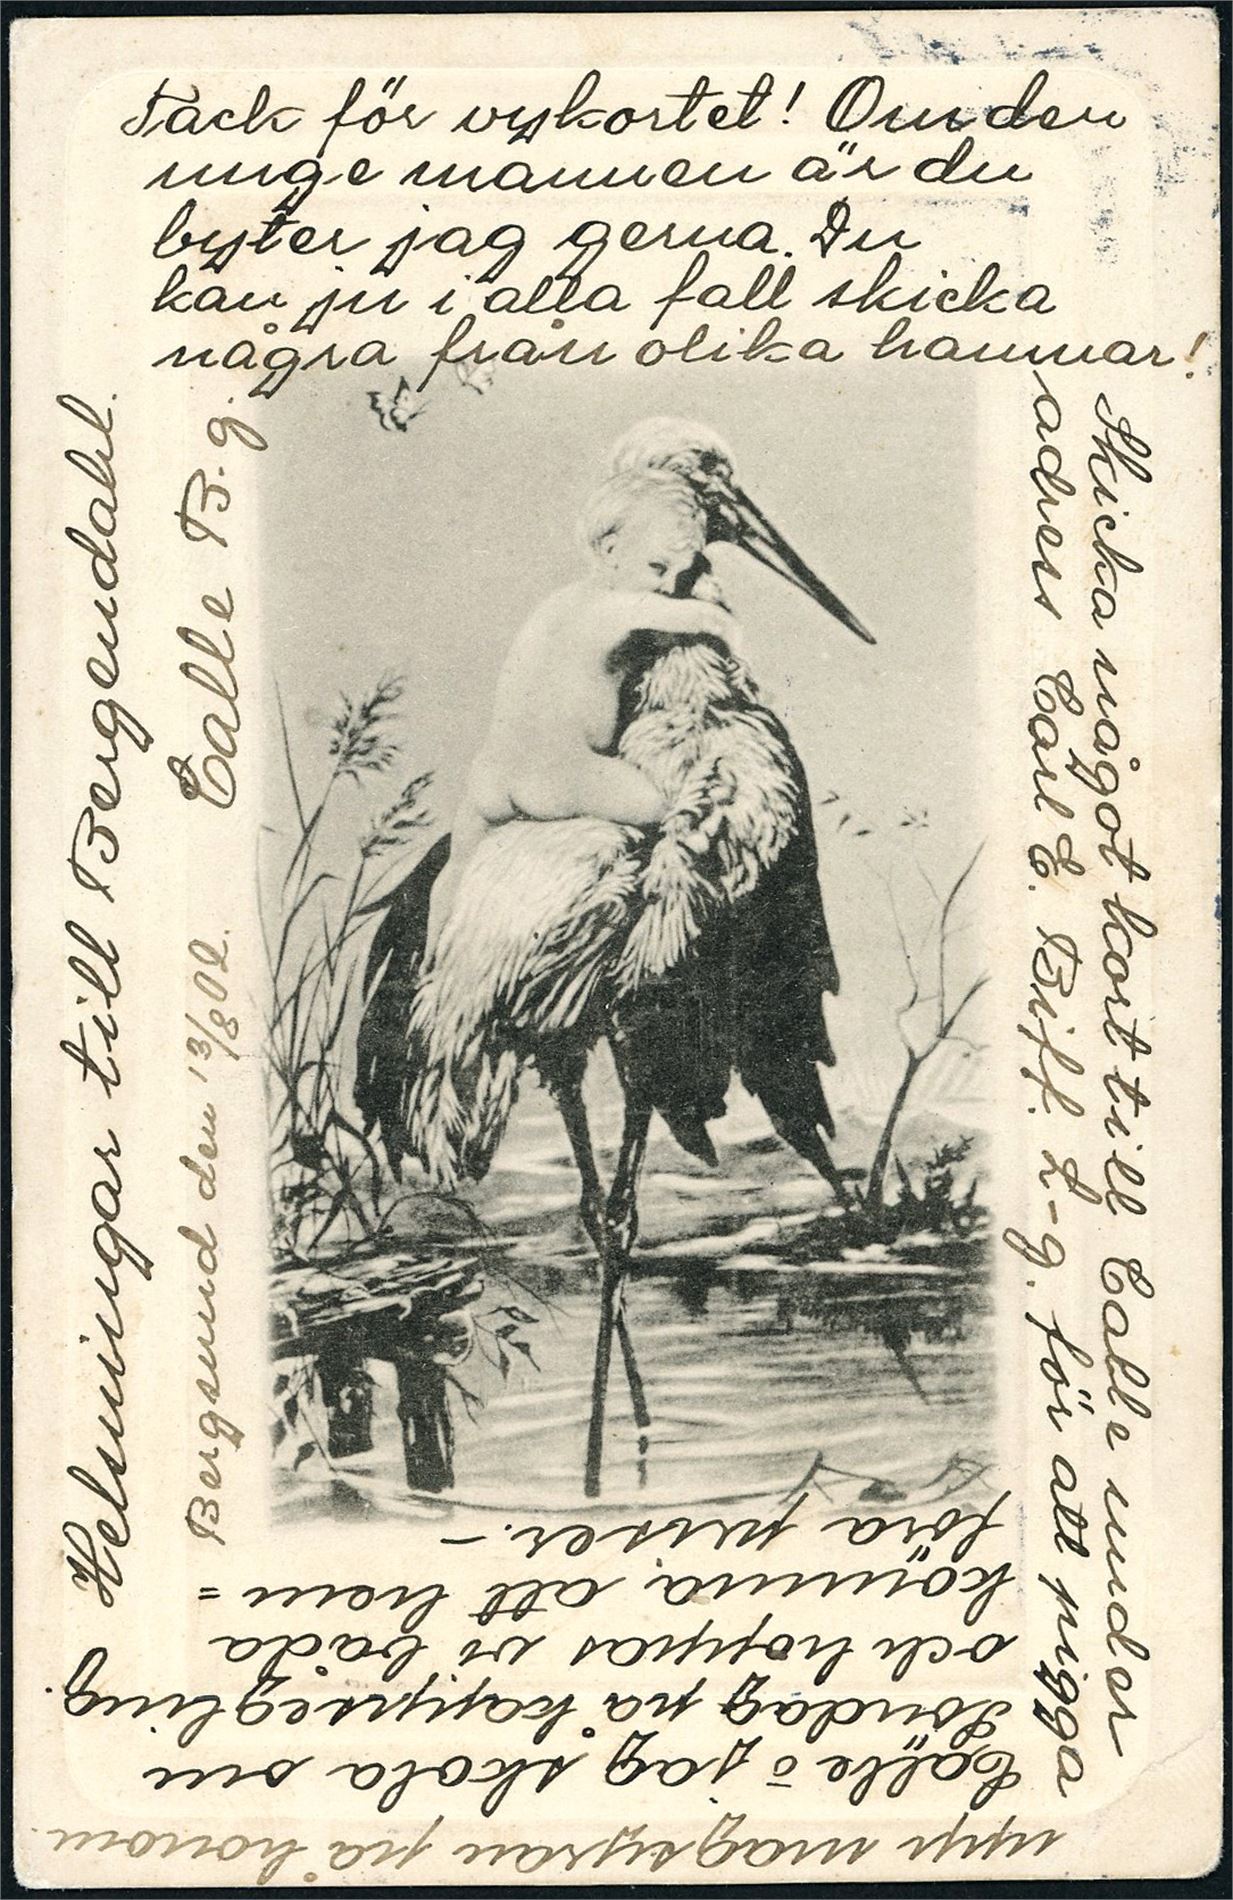 Tack för vykortet! Om den
unge mannen är du
byter jag gerna. Du
kan ju i alla fall skicka
några från olika hamnar!
Skicka något kort till Calle under
adress Carl E. Biff. L-g. för att pigga
upp magsyran på honom
Calle o jag skola om
Söndag på kappsegling
och hoppas vi båda
komma att hem=
föra priser.-
Helsningar till Bergendahl.
Calle B. g.
Bergsund den 13/8 02.